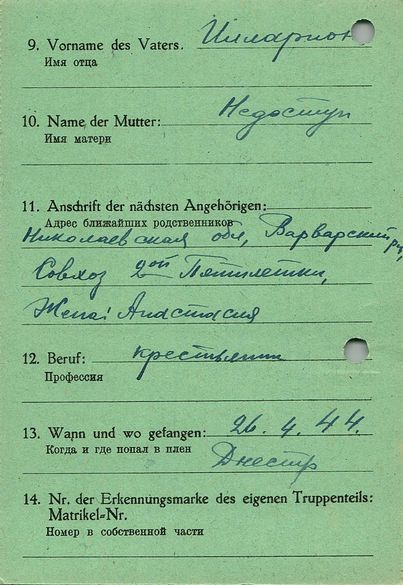 9. Vorname des Vaters: Илларион
Имя отца
10. Name der Mutter: Недоступ
Имя матери
11. Anschrift der nächsten Angehörigen:
Адрес ближайших родственников
Николаевская обл, Варварский рн,
Совхоз 2ой Пятилетки,
Жена: Анастасия
12. Beruf: крестьянин
Профессия
13. Wann und wo gefangen: 26. 4. 44.
Когда и где попал в плен
Днестр
14. Nr. der Erkennungsmarke des eigenen Truppenteils:
Matrikel-Nr.
Номер в собственной части